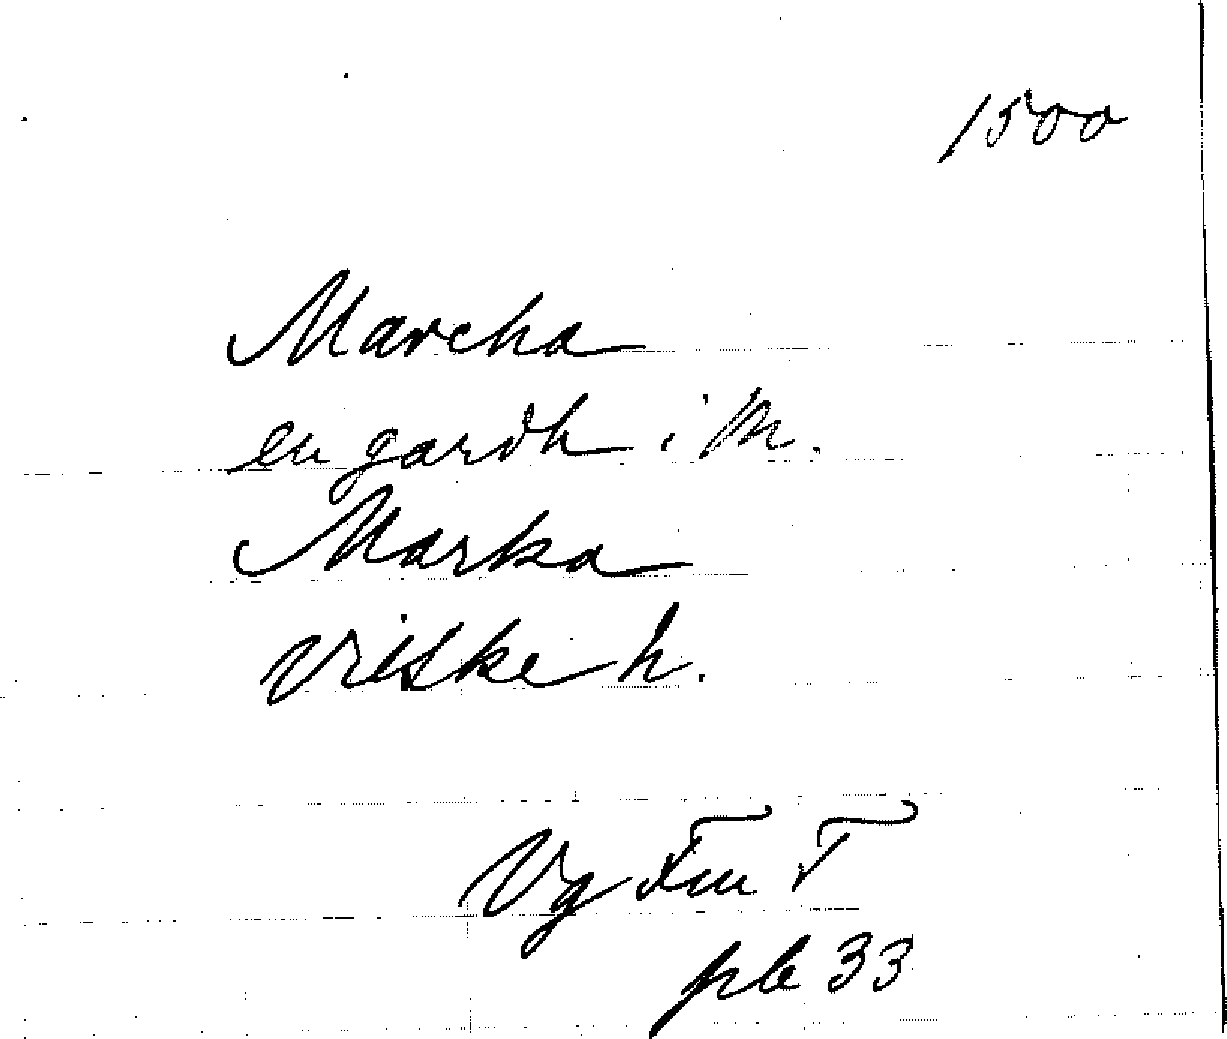 1500
Marcha
en gardh i M.
Marka
Vilske h.
Vg Fm T
pb 33